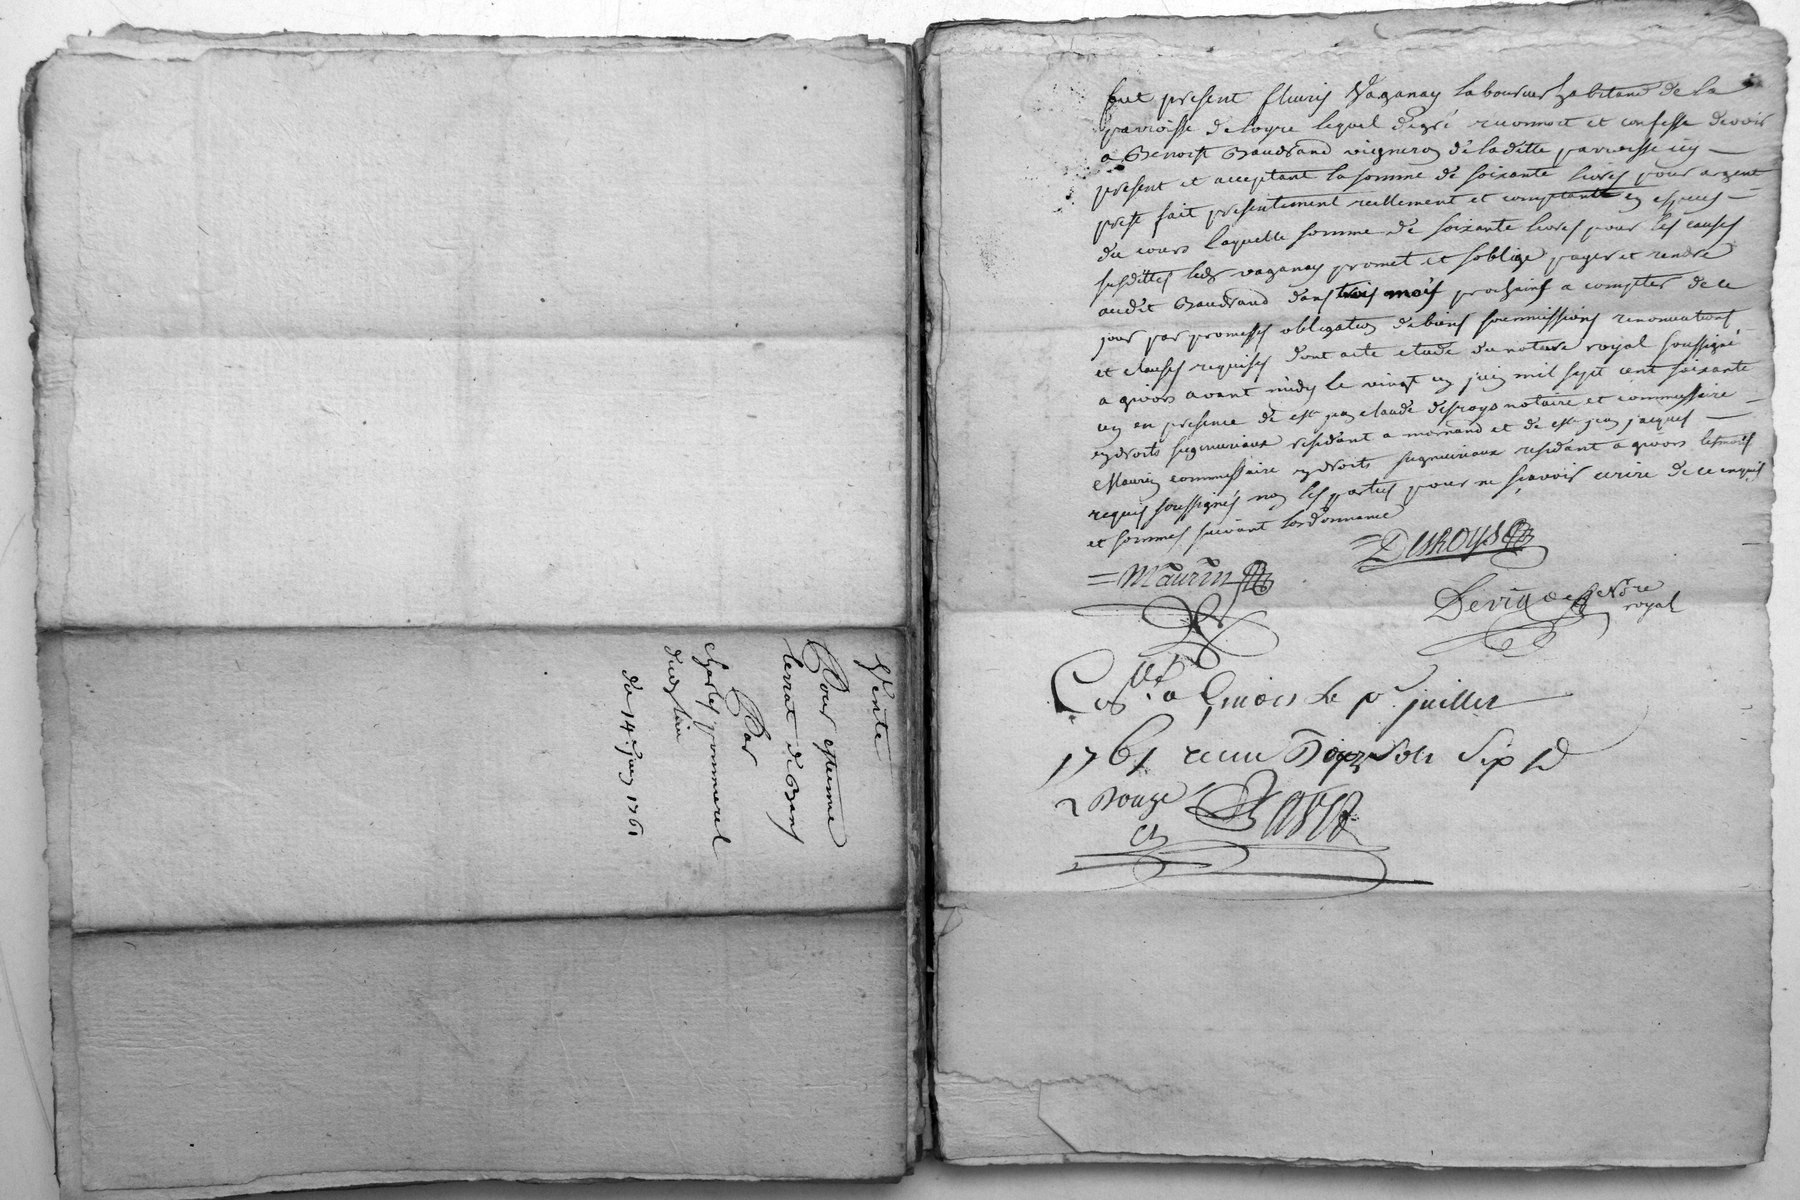 Vente
Pour estienne
levrat de Bans
Par
charles pommerel
du 14e juin 1761
fut present fleury Vaganay laboureur habitand de la
parroisse de loyre lequel de gré reconnoit et confesse devoir
a Benoist Baudrand vigneron de laditte parroisse icy
present et acceptant la somme de soixante livres pour argent
presté fait presentement reellement et comptant en especes
du cours laquelle somme de soixante livres pour les causes
susdittes ledt vaganay promet et soblige payer et rendre
audit Baudrand dans trois mois prochains a compter de ce
jour par promesses obligation de biens soumissions renonciations
et clauses requises dont acte etude du notaire royal soussigné
a givors avant midy le vingt un juin mil sept cent soixante
un en presence de sr jean claude desroys notaire et commissaire
en droits seigneuriaux residant a mornand et de sr jean jacques
Maurin commissaire en droits seigneuriaux residant a givors temoins
requis soussignés non les parties pour ne sçavoir ecrire de ce enquis
et sommés suivant lordonnance
Desroys
Maurin
Devignere Nore
royal
Collé a Givors le pr juillet
1761 receu Douze sols six d
Douze s